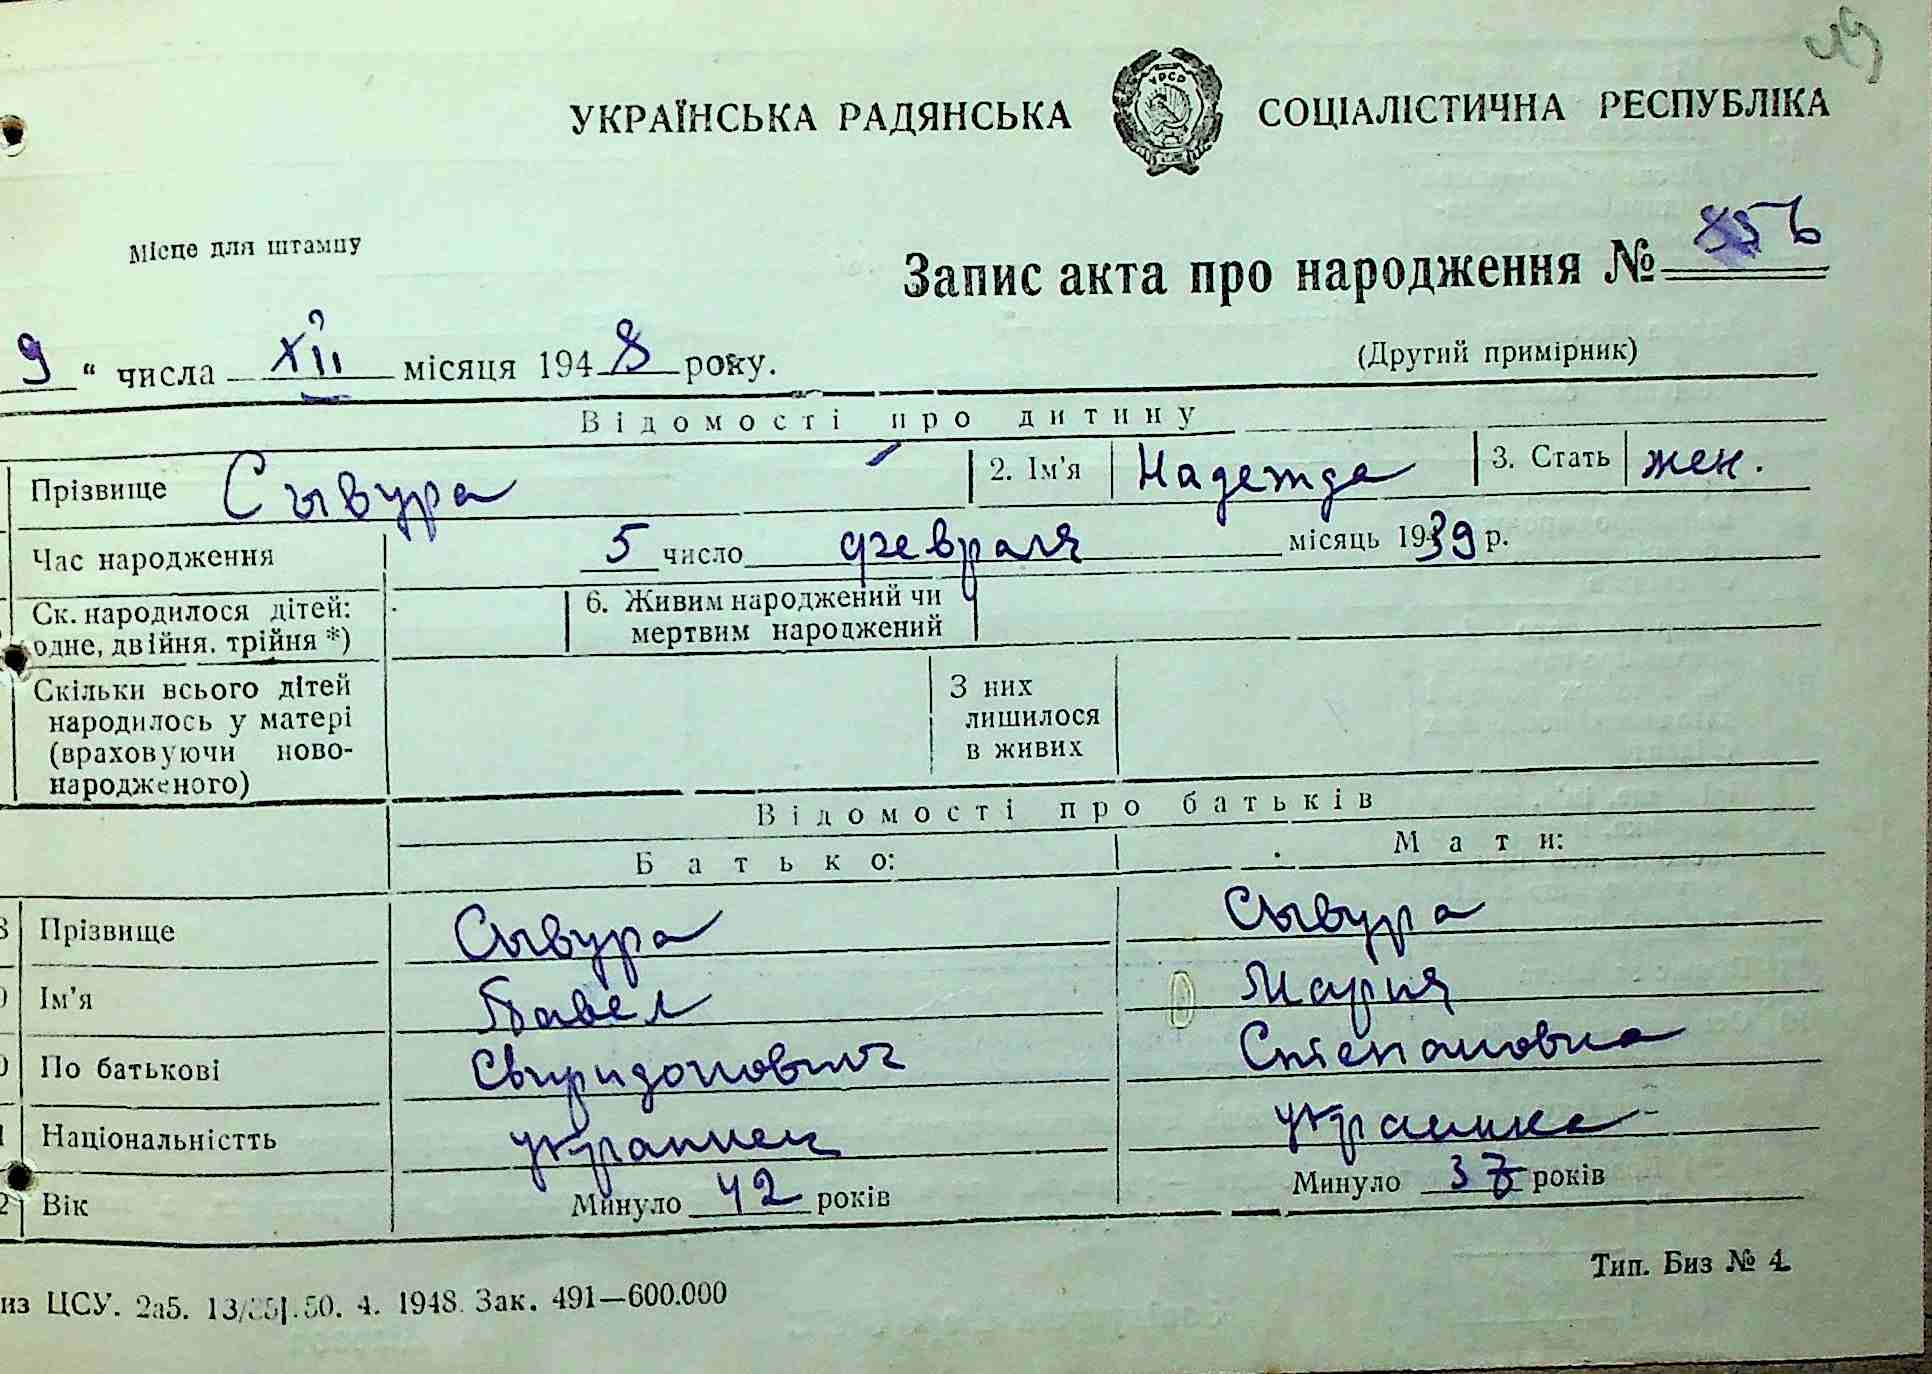 49
УКРАЇНСЬКА РАДЯНСЬКА СОЦІАЛІСТИЧНА РЕСПУБЛІКА
УРСР
Місце для штампу
Запис акта про народження № 856
9 " числа XII місяця 1948 року.
(Другий примірник)
Відомості про дитину
Прізвище Сывура 2. Ім'я Надежда 3. Стать жен.
Час народження 5 число февраля місяць 1939 р.
Ск. народилося дітей: одне, двійня, трійня *) 6. Живим народжений чи мертвим народжений
Скільки всього дітей народилось у матері (враховуючи ново-народженого) З них лишилося в живих
Відомості про батьків
Батько: Мати:
Прізвище Сывура Сывура
Ім'я Павел Мария
По батькові Свиридонович Степановна
Національністть украинец украинка
Вік Минуло 42 років Минуло 37 років
Тип. Биз № 4
из ЦСУ. 2а5. 50. 4. 1948. Зак. 491—600.000